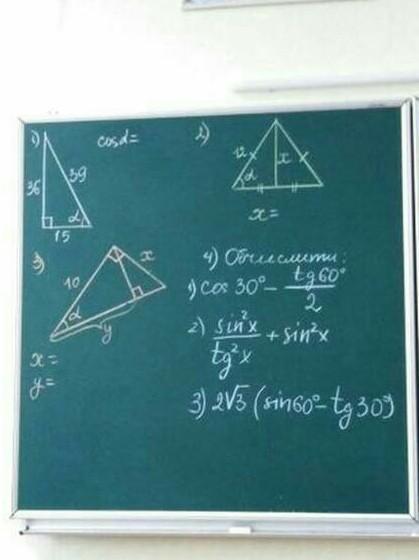 1) cos α =
36 39
α
15
2)
12 x
α
x =
3)
10 x
α
y
x =
y =
4) Обчислити:
1) cos 30° - tg 60° / 2
2) sin²x / tg²x + sin²x
3) 2√3 (sin 60° - tg 30°)